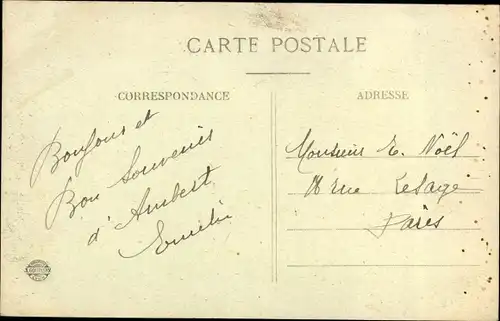 CARTE POSTALE
CORRESPONDANCE
ADRESSE
Bonjour et
Bon Souvenir
d'Ambert
Emilie
Monsieur E. Noël
rue Lesage
Paris